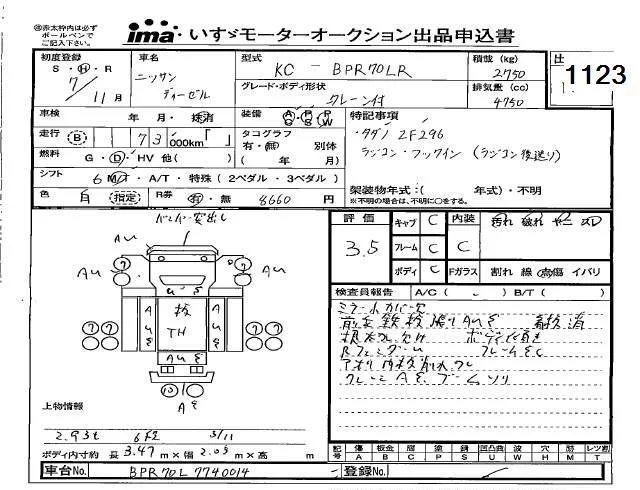 ㊟赤太枠内は必ず
ボールペンで
ご記入下さい。
ima いすゞモーターオークション出品申込書
初度登録
S・H・R
7/11月
車名
ニッサン
ディーゼル
型式
KC-BPR70LR
グレード・ボディ形状
クレーン付
積載 (kg)
2750
排気量 (cc)
4750
出
1123
車検
年 月・抹消
装備
A/C
P/S
P/W
特記事項
・タダノ ZF296
ラジコン・フックイン (ラジコン後送り)
走行 B 73000km「 」
タコグラフ
有・無 別体
( 年 月)
燃料 G・D・HV 他( )
シフト 6 M/T・A/T・特殊(2ペダル・3ペダル)
架装物年式:( 年式)・不明
※不明の場合は、不明に○をする。
色 白 (指定)
R券 有・無 8660円
バンパー突出し
評価 3.5
キャブ C
フレーム C
ボディ C
内装 C
汚れ 破れ ヤニ スレ
Fガラス 割れ 線 点傷 イバリ
検査員報告 A/C( ) B/T( )
ミラーホカバー欠
クレーンAE. ブームソリ
AU
AU
AU
抜
TH
上物情報
2.93t 6段 3/11
ボディ内寸約 長 3.47 m×幅 2.09 m×高 m
記号 傷 板金 腐 塗 錆 凹凸曲 波 穴 跡 レツ割
A B C P S U W H M T
車台No. BPR70L 7740014
登録No.